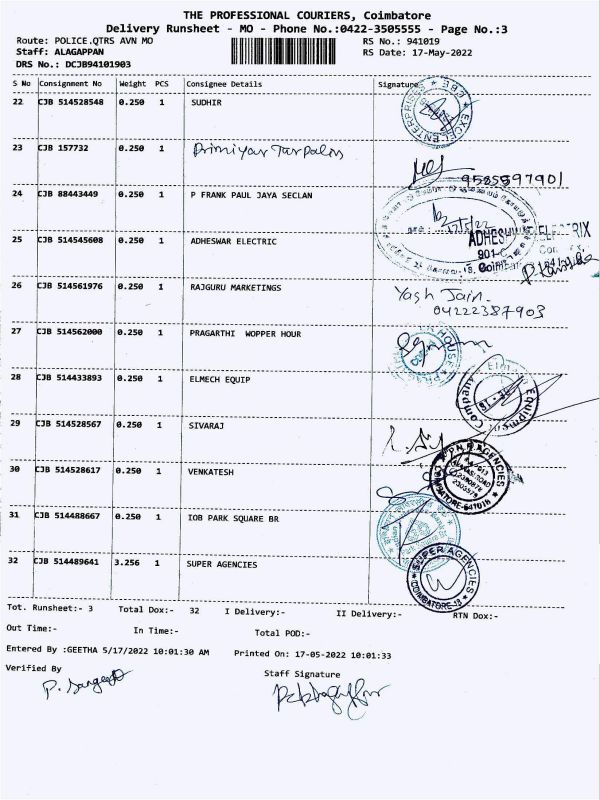 THE PROFESSIONAL COURIERS, Coimbatore
Delivery Runsheet - MO - Phone No.:0422-3505555 - Page No.:3
Route: POLICE.QTRS AVN MO RS No.: 941019
Staff: ALAGAPPAN RS Date: 17-May-2022
DRS No.: DCJB94101903
S No Consignment No Weight PCS Consignee Details Signature
22 CJB 514528548 0.250 1 SUDHIR
EXCEL ENTERPRISES * CBE *
23 CJB 157732 0.250 1
9585597901
24 CJB 88443449 0.250 1 P FRANK PAUL JAYA SECLAN
17/5/22
25 CJB 514545608 0.250 1 ADHESWAR ELECTRIC
26 CJB 514561976 0.250 1 RAJGURU MARKETINGS Yash Jain.
04222387903
27 CJB 514562000 0.250 1 PRAGARTHI WOPPER HOUR
28 CJB 514433893 0.250 1 ELMECH EQUIP
Equipment Company
29 CJB 514528567 0.250 1 SIVARAJ
30 CJB 514528617 0.250 1 VENKATESH
AGENCIES
COIMBATORE-641018
31 CJB 514488667 0.250 1 IOB PARK SQUARE BR
32 CJB 514489641 3.256 1 SUPER AGENCIES
SUPER AGENCIES
COIMBATORE-18
Tot. Runsheet:- 3 Total Dox:- 32 I Delivery:- II Delivery:- RTN Dox:-
Out Time:- In Time:- Total POD:-
Entered By :GEETHA 5/17/2022 10:01:30 AM Printed On: 17-05-2022 10:01:33
Verified By Staff Signature